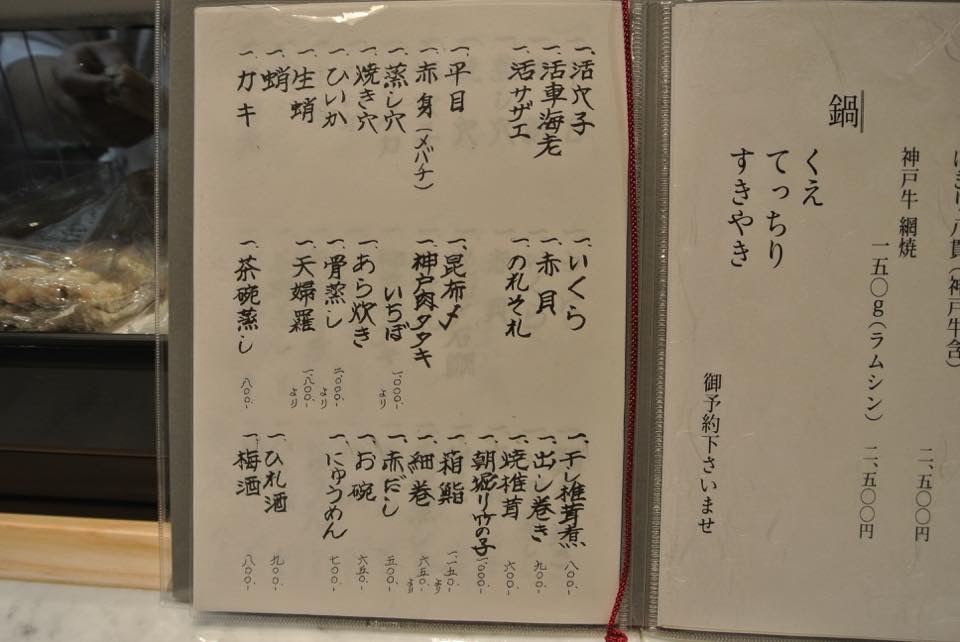 にぎり八貫(神戸牛含) 二、五〇〇円
神戸牛 網焼
一五〇g(ラムシン) 二、五〇〇円
鍋
くえ
てっちり
すきやき
御予約下さいませ
一、活穴子
一、活車海老
一、活サザエ
一、平目
一、赤身(メバチ)
一、蒸し穴
一、焼き穴
一、ひいか
一、生蛸
一、蛸
一、カキ
一、いくら
一、赤貝
一、のれそれ
一、昆布〆
一、神戸肉タタキ
いちぼ 一、〇〇〇-より
一、あら炊き
一、骨蒸し 二、〇〇〇-より
一、天婦羅 一、八〇〇-より
一、茶碗蒸し 八〇〇-
一、干し椎茸煮 八〇〇-
一、出し巻き 九〇〇-
一、焼椎茸 六〇〇-
一、朝堀り竹の子 一、〇〇〇-
一、箱鮨 一、一五〇-より
一、細巻 六五〇-より
一、赤だし 五〇〇-
一、お碗 六五〇-
一、にゅうめん 七〇〇-
一、ひれ酒 九〇〇-
一、梅酒 八〇〇-